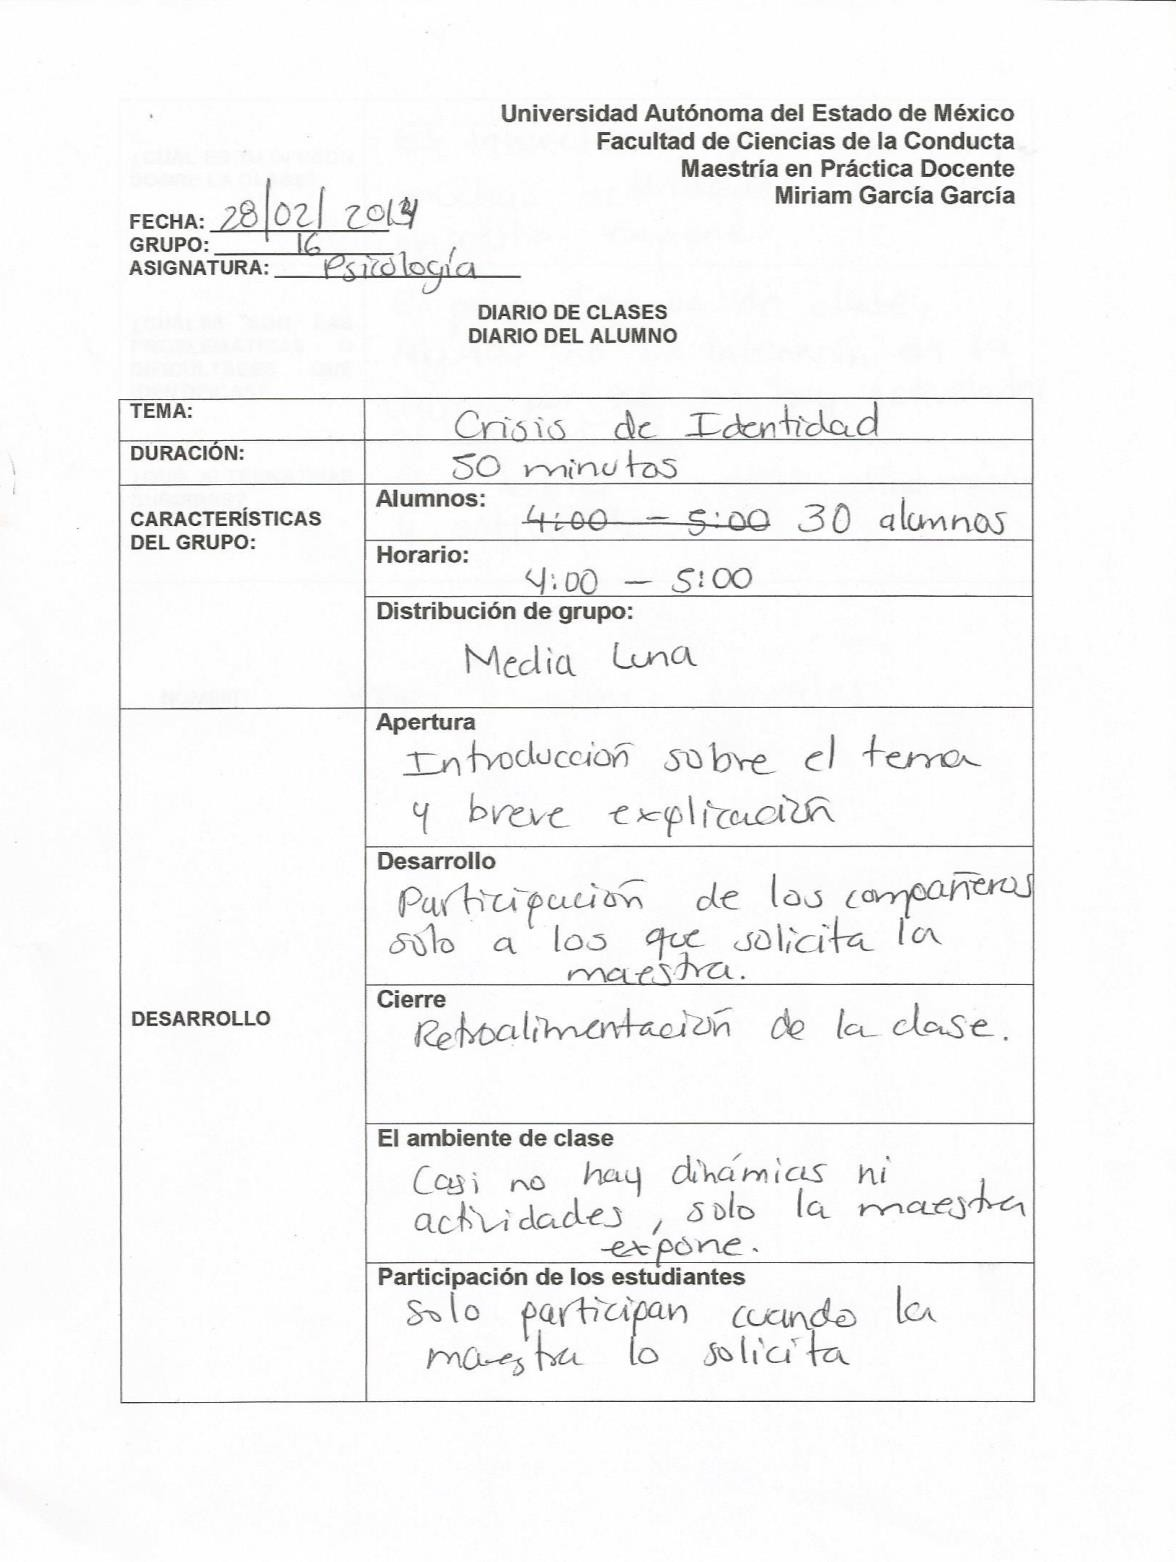 Universidad Autónoma del Estado de México
Facultad de Ciencias de la Conducta
Maestría en Práctica Docente
Miriam García García
FECHA: 28/02/2014
GRUPO: 16
ASIGNATURA: Psicología
DIARIO DE CLASES
DIARIO DEL ALUMNO
TEMA: Crisis de Identidad
DURACIÓN: 50 minutos
CARACTERÍSTICAS
DEL GRUPO:
Alumnos: 4:00 - 5:00 30 alumnos
Horario:
4:00 - 5:00
Distribución de grupo:
Media Luna
DESARROLLO
Apertura
Introducción sobre el tema
y breve explicación
Desarrollo
Participación de los compañeros
solo a los que solicita la
maestra.
Cierre
Retroalimentación de la clase.
El ambiente de clase
Casi no hay dinámicas ni
actividades, solo la maestra
expone.
Participación de los estudiantes
Solo participan cuando la
maestra lo solicita